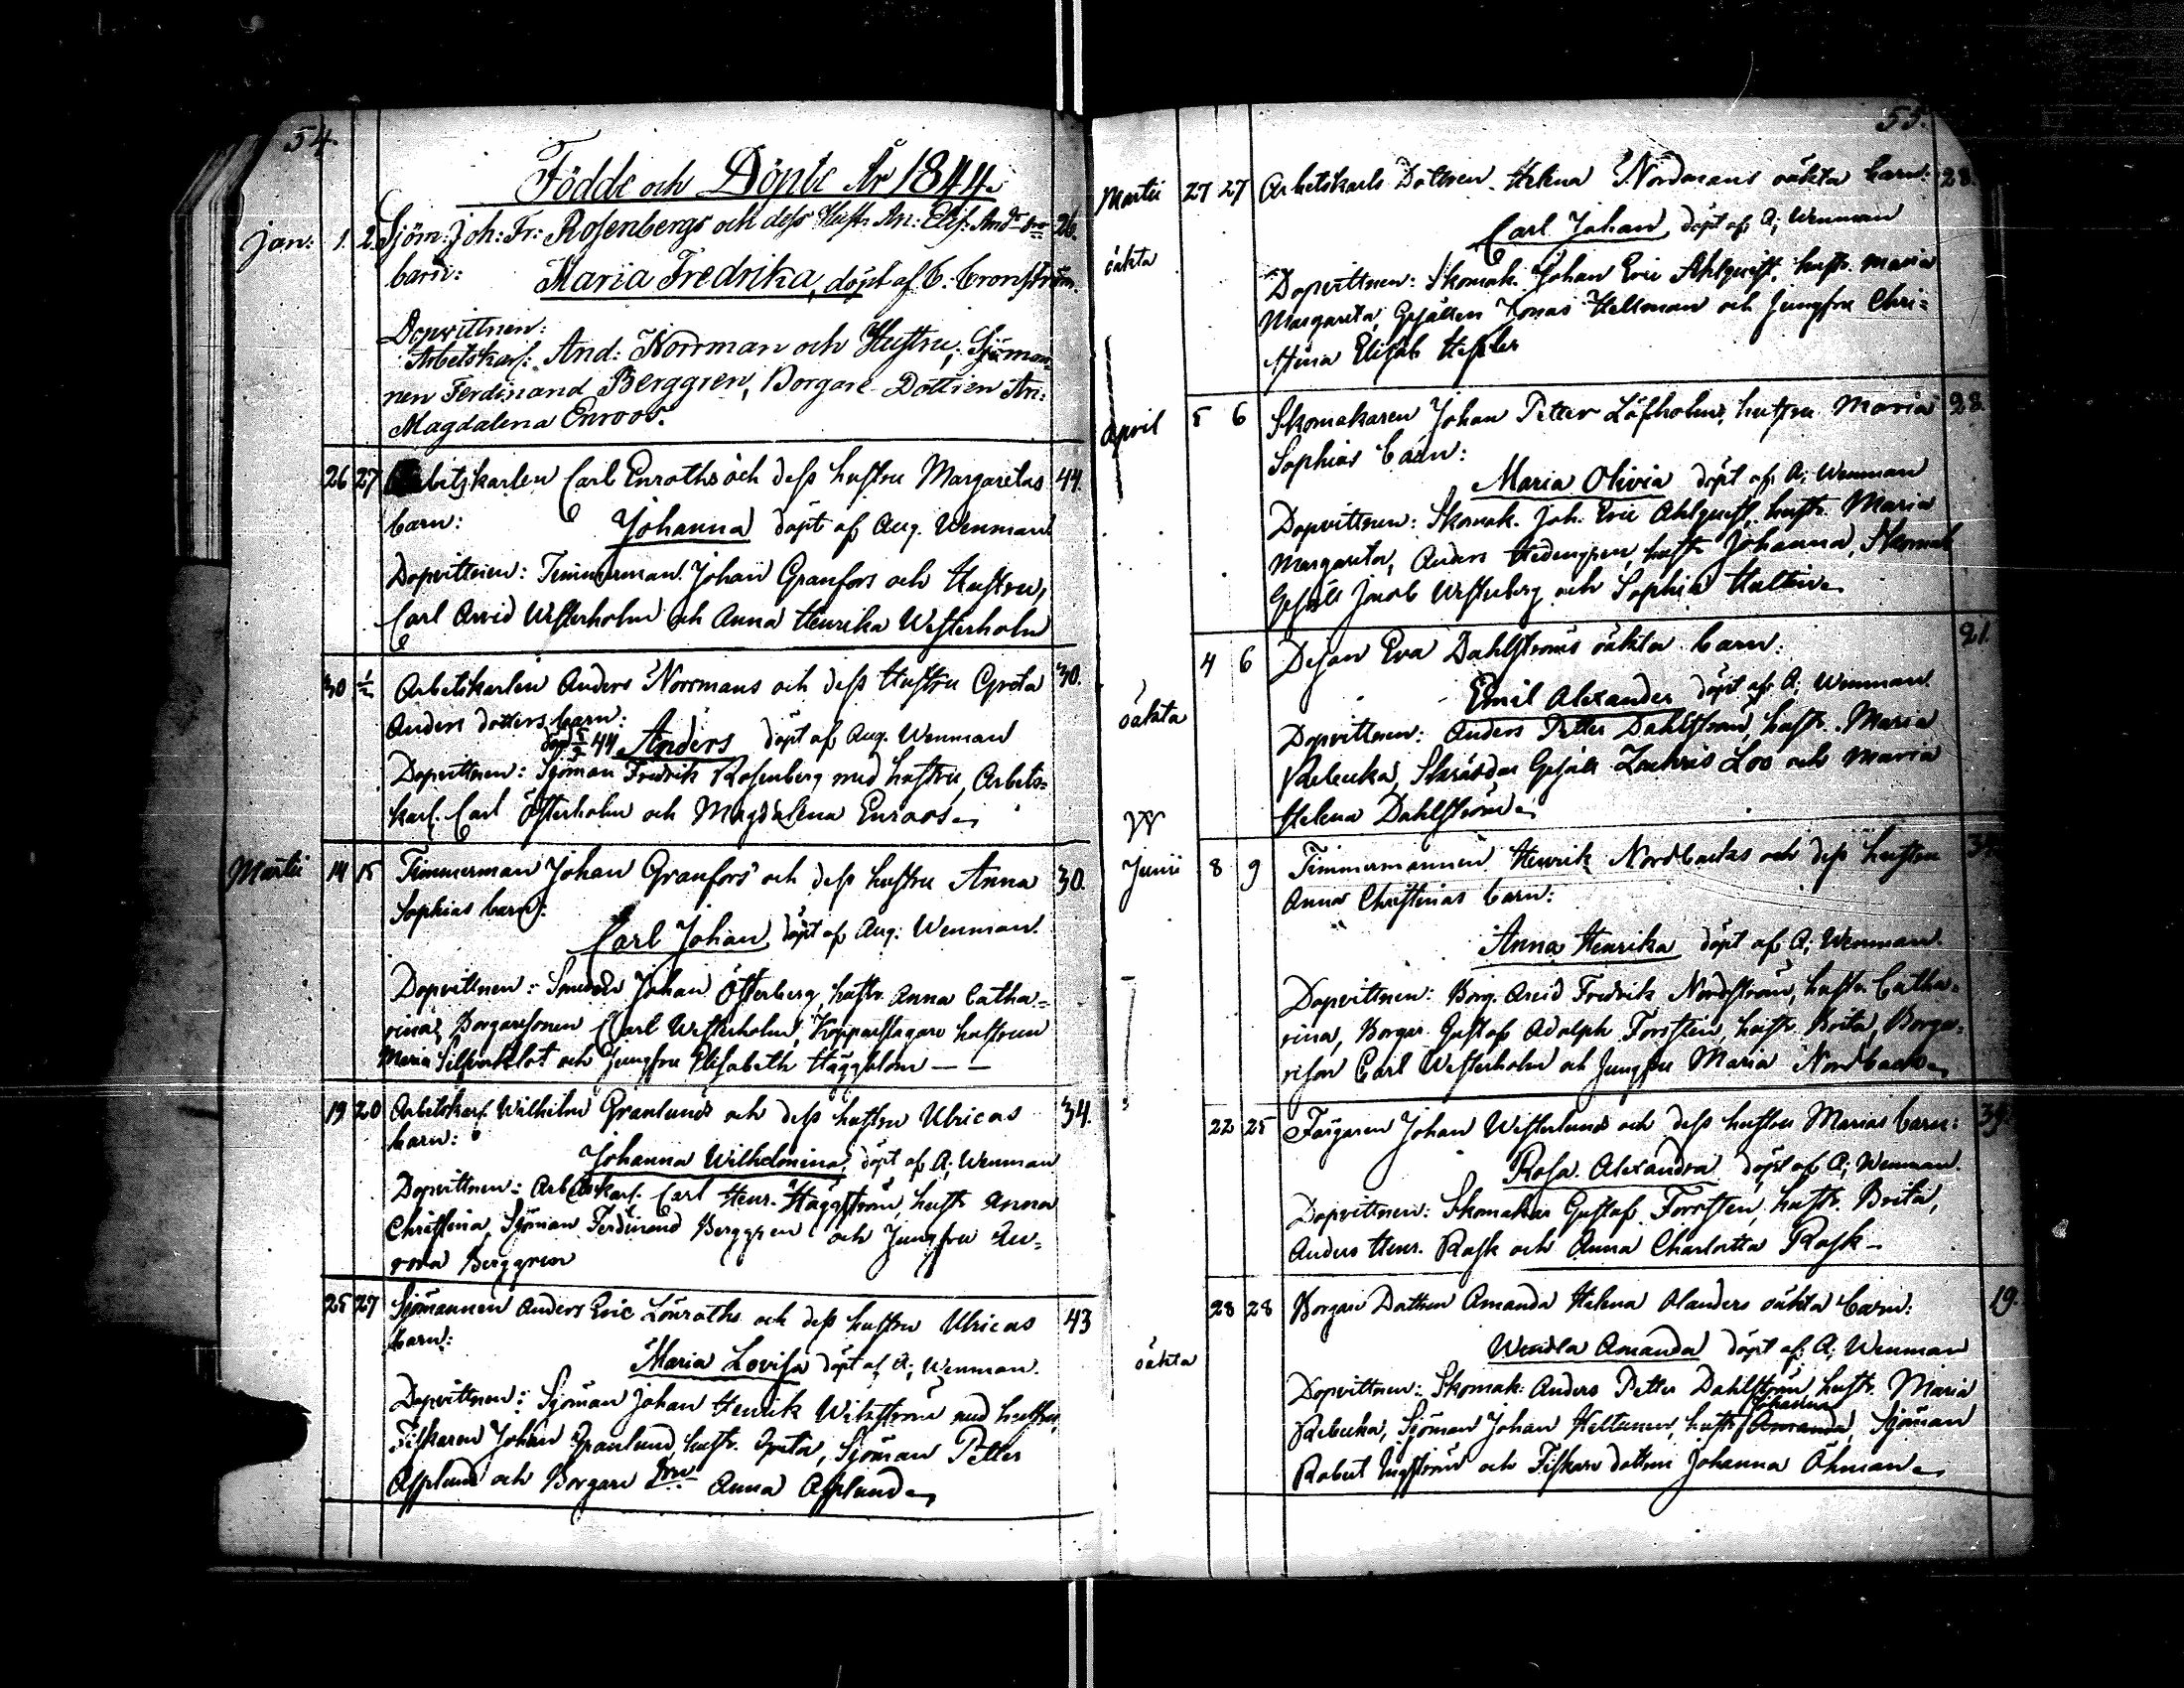 54.
Födde och Döpte År 1844.
Jan: 1. 2. Sjöm: Joh: Fr: Rosenbergs och dess Hustr. An: Elis: And-drs 26.
barn: Maria Fredrika, döpt af C. Cronström.
Dopvittnen:
Arbetskarl: And: Norrman och Hustru, Sjöman-
nen Ferdinand Berggren, Borgare Dottren An:
Magdalena Enroos.
26 27 Arbetskarlen Carl Enroths och dess hustru Margaretas 44.
barn: Johanna döpt af Aug. Wenman
Dopvittnen: Timmerman Johan Granfors och Hustru,
Carl Arvid Westerholm och Anna Henrika Westerholm
30 1/2 Arbetskarlen Anders Norrmans och dess Hustru Greta 30.
Anders dotters barn:
död 44 Anders döpt af Aug. Wenman
Dopvittnen: Sjöman Fredrik Rosenberg med hustru, Arbets-
karl. Carl Österholm och Magdalena Enroos.
Martii 14 15 Timmerman Johan Granfors och dess hustru Anna 30.
Sophias barn:
Carl Johan, döpt af Aug: Wenman.
Dopvittnen: Smeden Johan Österberg, hustr. Anna Catha-
rina, Borgaresonen Carl Westerholm, Kopparslagare hustrun
Maria Silfverklot och Jungfru Elisabeth Häggblom — —
19 20 Arbetskarl. Wilhelm Granlunds och dess hustru Ulricas 34.
barn:
Johanna Wilhelmina, döpt af A; Wenman
Dopvittnen: Arbetskarl. Carl Henr. Häggström, hustr Anna
Christina, Sjöman Ferdinand Berggren och Jungfru Au-
rora Berggren
25 27 Sjömannen Anders Eric Lönroths och dess hustru Ulricas 43
barn:
Maria Lovisa döpt af A; Wenman.
Dopvittnen: Sjöman Johan Henrik Wikström med hustru,
Fiskaren Johan Granlund, hustr. Greta, Sjöman Petter
Asplund och Borgare Anna Asplund.
55.
Martii 27 27 Arbetskarls Dottren Helena Nordmans oäkta barn: 28.
Carl Johan, döpt af A; Wenman
oäkta
Dopvittnen: Skomak. Johan Eric Ahlquist, hustr. Maria
Margareta, Gesällen Jonas Hellman och Jungfru Chri-
stina Elisab Hessler
April 5 6 Skomakaren Johan Petter Löfholms, hustru Maria 28.
Sophias barn:
Maria Olivia döpt af A; Wenman
Dopvittnen: Skomak. Joh. Eric Ahlquist, hustr. Maria
Margareta, Anders Hedengren, hustr Johanna, Skomak
Gesäll Jacob Westerberg och Sophia Hultin.
4 6 Dejan Eva Dahlströms oäkta barn: 21.
Emil Alexander döpt af A; Wenman.
oäkta
Dopvittnen: Anders Petter Dahlström, hustr. Maria
Rebecka, Skräddar Gesäll Zachris Loo och Maria
Helena Dahlström.
Junii 8 9 Timmermannen Henrik Nordbacks och dess hustru
Anna Christinas barn:
Anna Henrika döpt af A; Wenman.
Dopvittnen: Borg. Arvid Fredrik Nordström, hustr. Catha-
rina, Borgar. Gustaf Adolph Forsten, hustr. Brita, Borga-
reson Carl Westerholm och Jungfru Maria Nordback.
22 25 Färgaren Johan Westerlunds och dess hustru Marias barn: 39.
Rosa Alexandra döpt af A; Wenman.
Dopvittnen: Skomakar Gustaf Forsten, hustr. Brita,
Anders Henr. Rask och Anna Charlotta Rask.
28 28 Borgare Dottren Amanda Helena Olanders oäkta barn: 19.
Wendla Amanda döpt af A; Wenman
oäkta
Dopvittnen: Skomak: Anders Petter Dahlström, hustr. Maria
Rebecka, Sjöman Johan Keltunen, hustr Johanna Amanda, Sjöman
Robert Engström och Fiskare dottren Johanna Öhman.